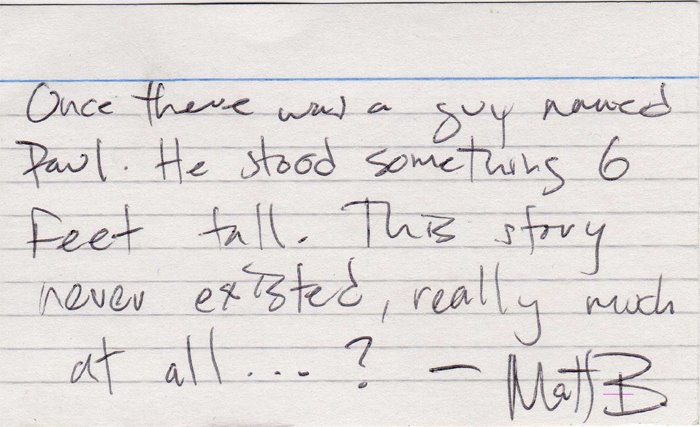 Once there was a guy named
Paul. He stood something 6
Feet tall. This story
never existed, really much
at all.... ? — Matt B